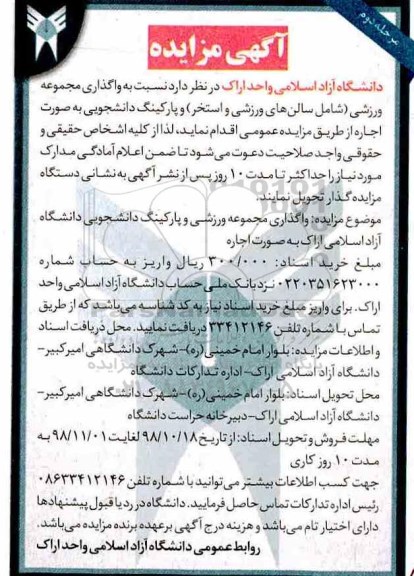 مرحله دوم
آگهی مزایده
دانشگاه آزاد اسلامی واحد اراک در نظر دارد نسبت به واگذاری مجموعه
ورزشی (شامل سالن های ورزشی و استخر) و پارکینگ دانشجویی به صورت
اجاره از طریق مزایده عمومی اقدام نماید، لذا از کلیه اشخاص حقیقی و
حقوقی واجد صلاحیت دعوت می شود تا ضمن اعلام آمادگی مدارک
مورد نیاز را حداکثر تا مدت ۱۰ روز پس از نشر آگهی به نشانی دستگاه
مزایده گذار تحویل نمایند.
موضوع مزایده: واگذاری مجموعه ورزشی و پارکینگ دانشجویی دانشگاه
آزاد اسلامی اراک به صورت اجاره
مبلغ خرید اسناد: ۳۰۰/۰۰۰ ریال واریز به حساب شماره
۰۲۲۰۳۵۱۶۲۳۰۰۰ نزد بانک ملی حساب دانشگاه آزاد اسلامی واحد
اراک. برای واریز مبلغ خرید اسناد نیاز به کد شناسه می باشد که از طریق
تماس با شماره تلفن ۳۳۴۱۲۱۴۶ دریافت نمایید. محل دریافت اسناد
و اطلاعات مزایده: بلوار امام خمینی(ره)-شهرک دانشگاهی امیرکبیر-
دانشگاه آزاد اسلامی اراک-اداره تدارکات دانشگاه
محل تحویل اسناد: بلوار امام خمینی(ره)-شهرک دانشگاهی امیرکبیر-
دانشگاه آزاد اسلامی اراک-دبیرخانه حراست دانشگاه
مهلت فروش و تحویل اسناد: از تاریخ ۹۸/۱۰/۱۸ لغایت ۹۸/۱۱/۰۱ به
مدت ۱۰ روز کاری
جهت کسب اطلاعات بیشتر می توانید با شماره تلفن ۰۸۶۳۳۴۱۲۱۴۶
رئیس اداره تدارکات تماس حاصل فرمایید. دانشگاه در رد یا قبول پیشنهادها
دارای اختیار تام می باشد و هزینه درج آگهی برعهده برنده مزایده می باشد.
روابط عمومی دانشگاه آزاد اسلامی واحد اراک